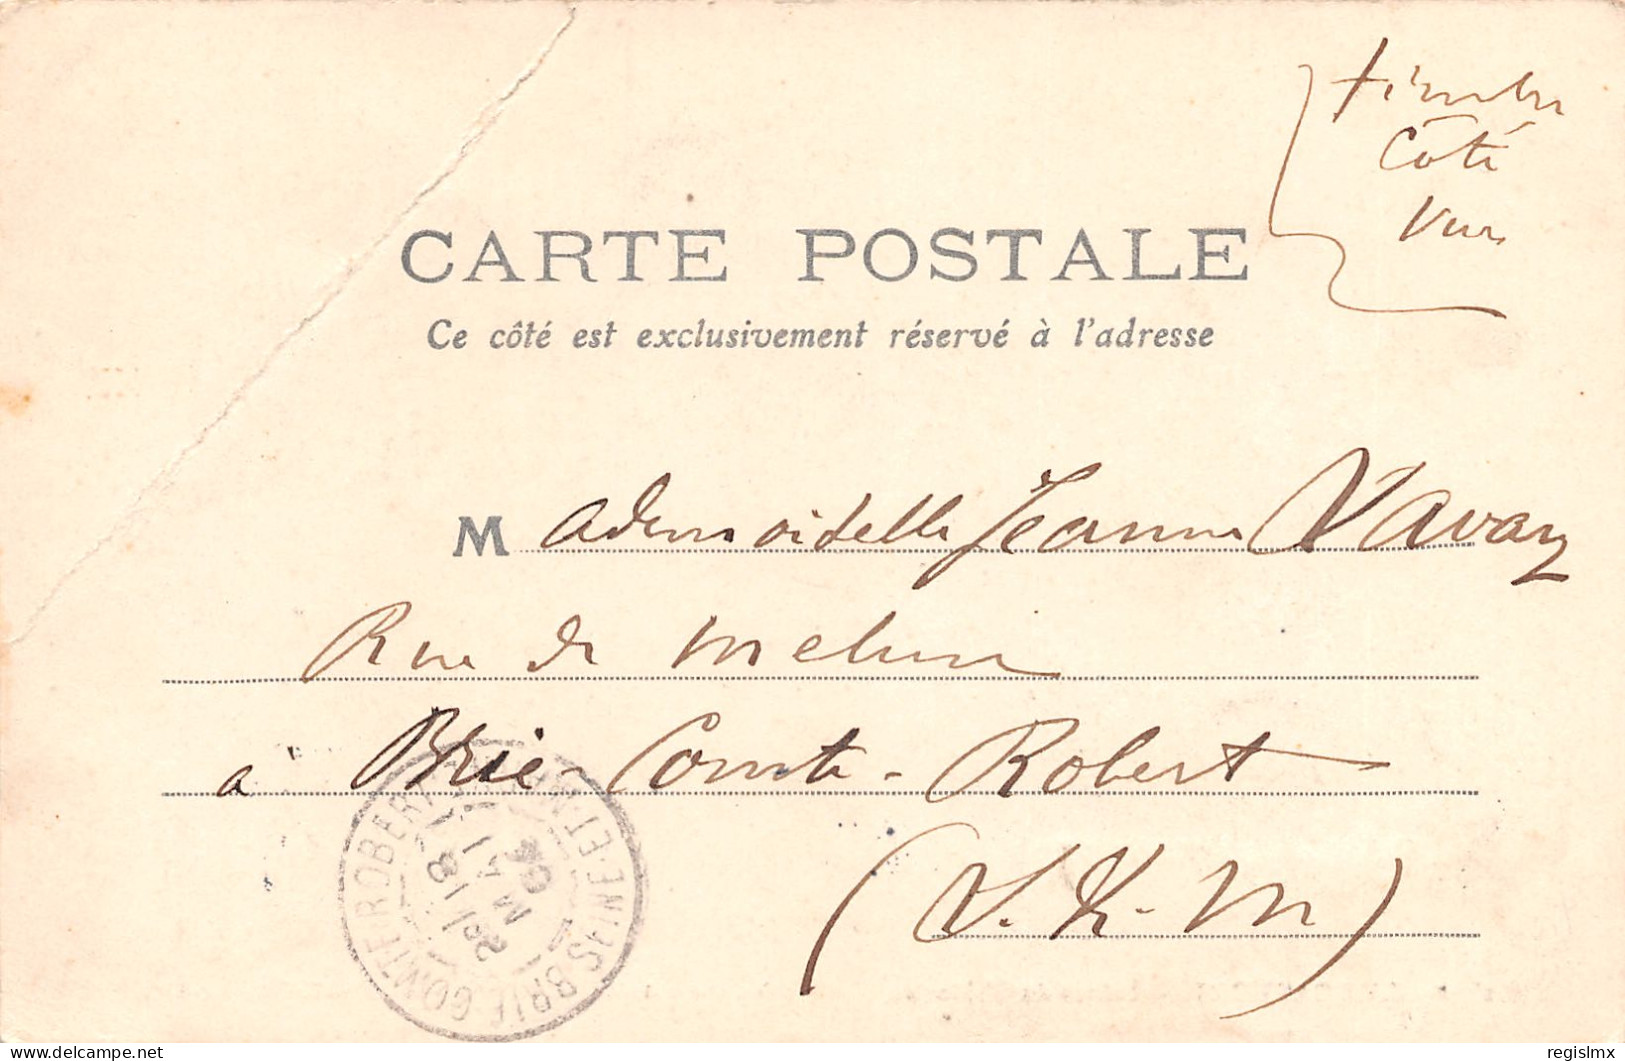 timbre
Côté
Vue
CARTE POSTALE
Ce côté est exclusivement réservé à l'adresse
Mademoiselle Jeanne Vavay
Rue de Melun
à Brie-Comte-Robert
(S. &. M)
BRIE-COMTE-ROBERT SEINE-ET-MARNE
18
MAI
delcampe.net
regislmx